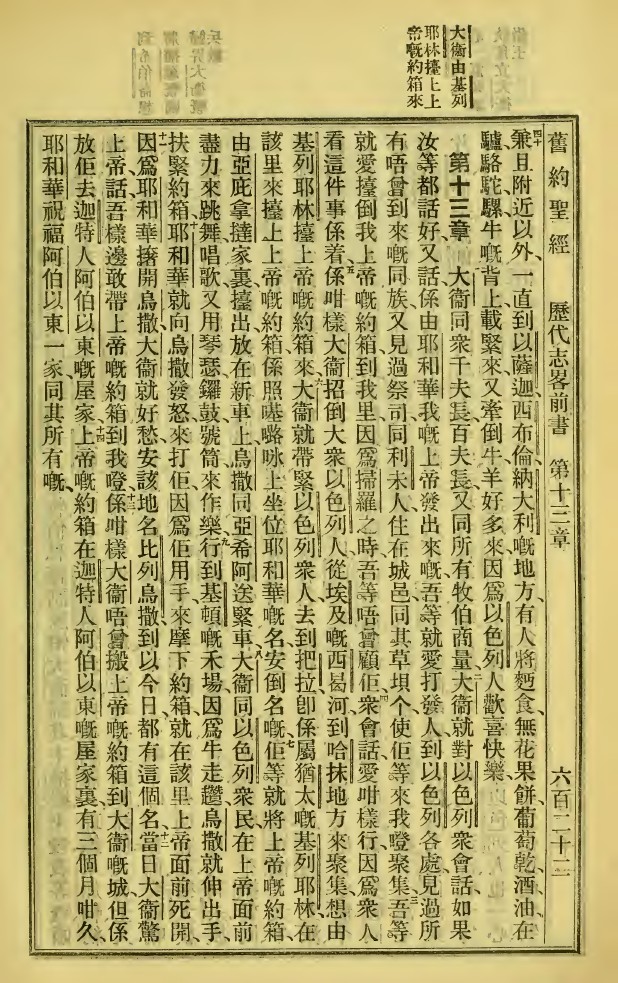 大衛由基列
耶林擡上上
帝嘅約箱來
舊約聖經　歷代志畧前書　第十三章　六百二十二
四十兼且附近以外、一直到以薩迦西布倫納大利嘅地方、有人將麪食、無花果餅、葡萄乾、酒油、在
驢、駱駝、騾、牛嘅背上載緊來、又牽倒牛羊好多來、因爲以色列人歡喜快樂、
第十三章　大衛同衆千夫長百夫長、又同所有牧伯商量、二大衛就對以色列衆會話、如果
汝等都話好、又話係由耶和華我嘅上帝發出來嘅、吾等就愛打發人到以色列各處、見過所
有唔曾到來嘅同族、又見過祭司同利未人、住在城邑同其草垻个、使佢等來我嶝聚集、三吾等
就愛擡倒我上帝嘅約箱到我里、因爲掃羅之時、吾等唔曾顧佢、四衆會話、愛咁樣行、因爲衆人
看這件事係着、五係咁樣大衛招倒大衆以色列人、從埃及嘅西曷河、到哈抹地方來聚集、想由
基列耶林擡上上帝嘅約箱來、六大衛就帶緊以色列衆人去到把拉、卽係屬猶太嘅基列耶林、在
該里來擡上上帝嘅約箱、係照𠹌嚧咏上坐位耶和華嘅名、安倒名嘅、七佢等就將上帝嘅約箱
由亞庇拿撻家裏擡出、放在新車上、烏撒同亞希阿送緊車、大衛同以色列衆民、在上帝面前
盡力來跳舞唱歌、又用琴瑟鑼鼓號筒來作樂、九行到基頓嘅禾場、因爲牛走躓、烏撒就伸出手、
扶緊約箱、十耶和華就向烏撒發怒來打佢、因爲佢用手來摩下約箱、就在該里上帝面前死開、
十一因爲耶和華擠開烏撒、大衛就好愁、安該地名比列烏撒、到以今日都有這個名、十二當日大衛驚
上帝、話、吾樣邊敢帶上帝嘅約箱到我嶝、十三係咁樣大衛唔曾搬上帝嘅約箱到大衛嘅城、但係
放佢去迦特人阿伯以東嘅屋家、十四上帝嘅約箱在迦特人阿伯以東嘅屋家裏、有三個月咁久、
耶和華祝福阿伯以東一家、同其所有嘅、